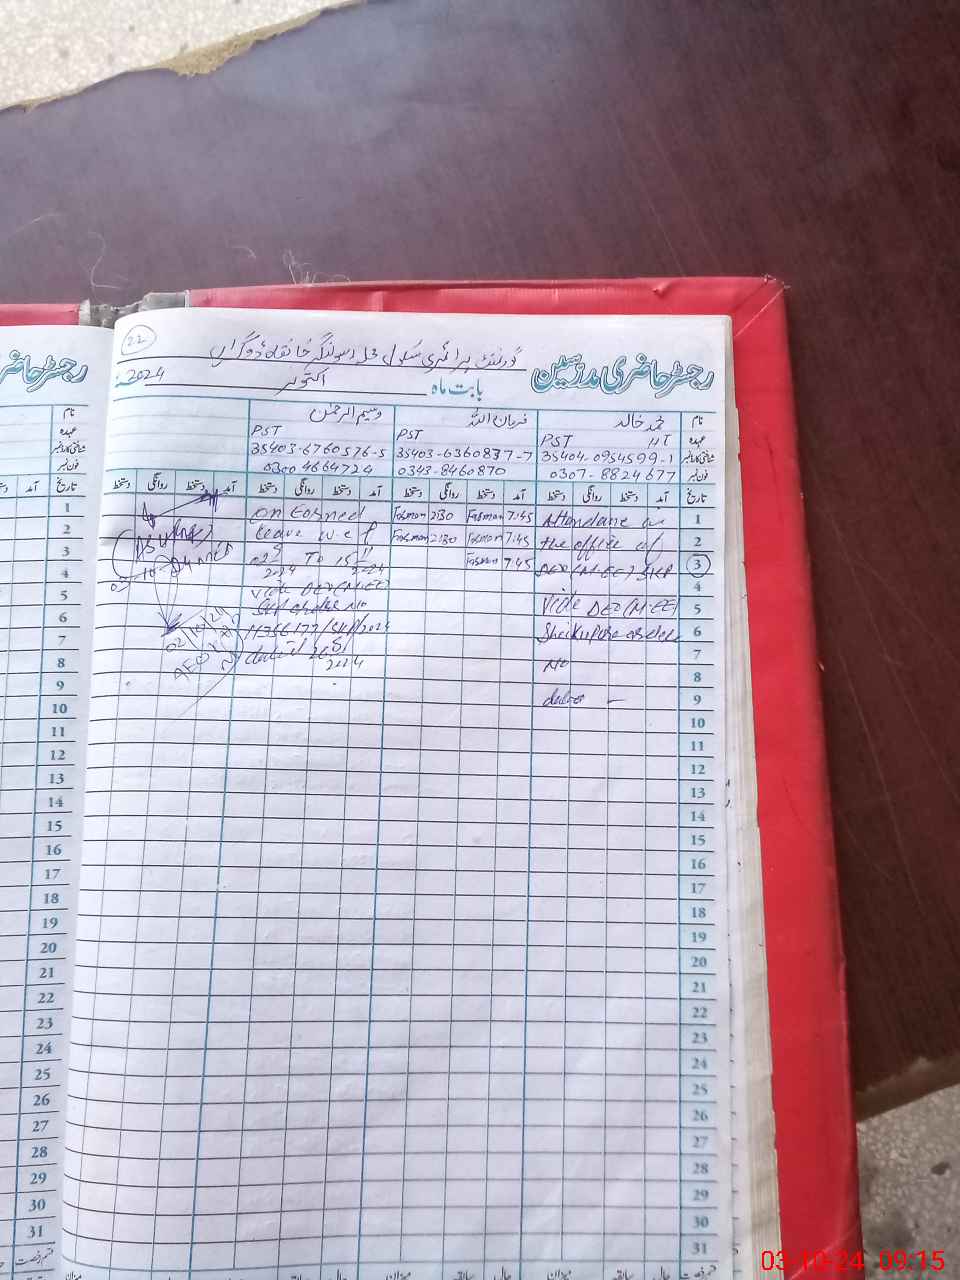 22
رجسٹر حاضری مدرسین
گورنمنٹ پرائمری سکول محلہ رسولنگر خانقاہ ڈوگراں
بابت ماہ اکتوبر 2024
نام محمد خالد فرمان اللہ وسیم الرحمٰن
عہدہ PST PST PST
شناختی کارڈ نمبر 35404-0954599-1 35403-6360837-7 35403-6760576-5
فون نمبر 0307-8824677 0343-8460870 0300 4664724
تاریخ آمد دستخط روانگی دستخط آمد دستخط روانگی دستخط آمد دستخط روانگی دستخط آمد دستخط روانگی دستخط
1 Attendance in 7:45 Farman 2:30 Farman on Earned
2 the office of 7:45 Farman 2:30 Farman Leave w.e.f
3 DEO (M-EE) SKP 7:45 Farman To 15
4 2024 2024 Vide DEO (M-EE)
5 Vide DEO (M-EE) SKP order No
6 Sheikupura order /SKP/2024
7 No dated 26
8 2024
9 dated
10
11
12
13
14
15
16
17
18
19
20
21
22
23
24
25
26
27
28
29
30
31
02/10/24
AEO
رجسٹر حاضر
نام
عہدہ
شناختی کارڈ نمبر
فون نمبر
تاریخ آمد دستخط
1
2
3
4
5
6
7
8
9
10
11
12
13
14
15
16
17
18
19
20
21
22
23
24
25
26
27
28
29
30
31
قسم رخصت
03-10-24 09:15